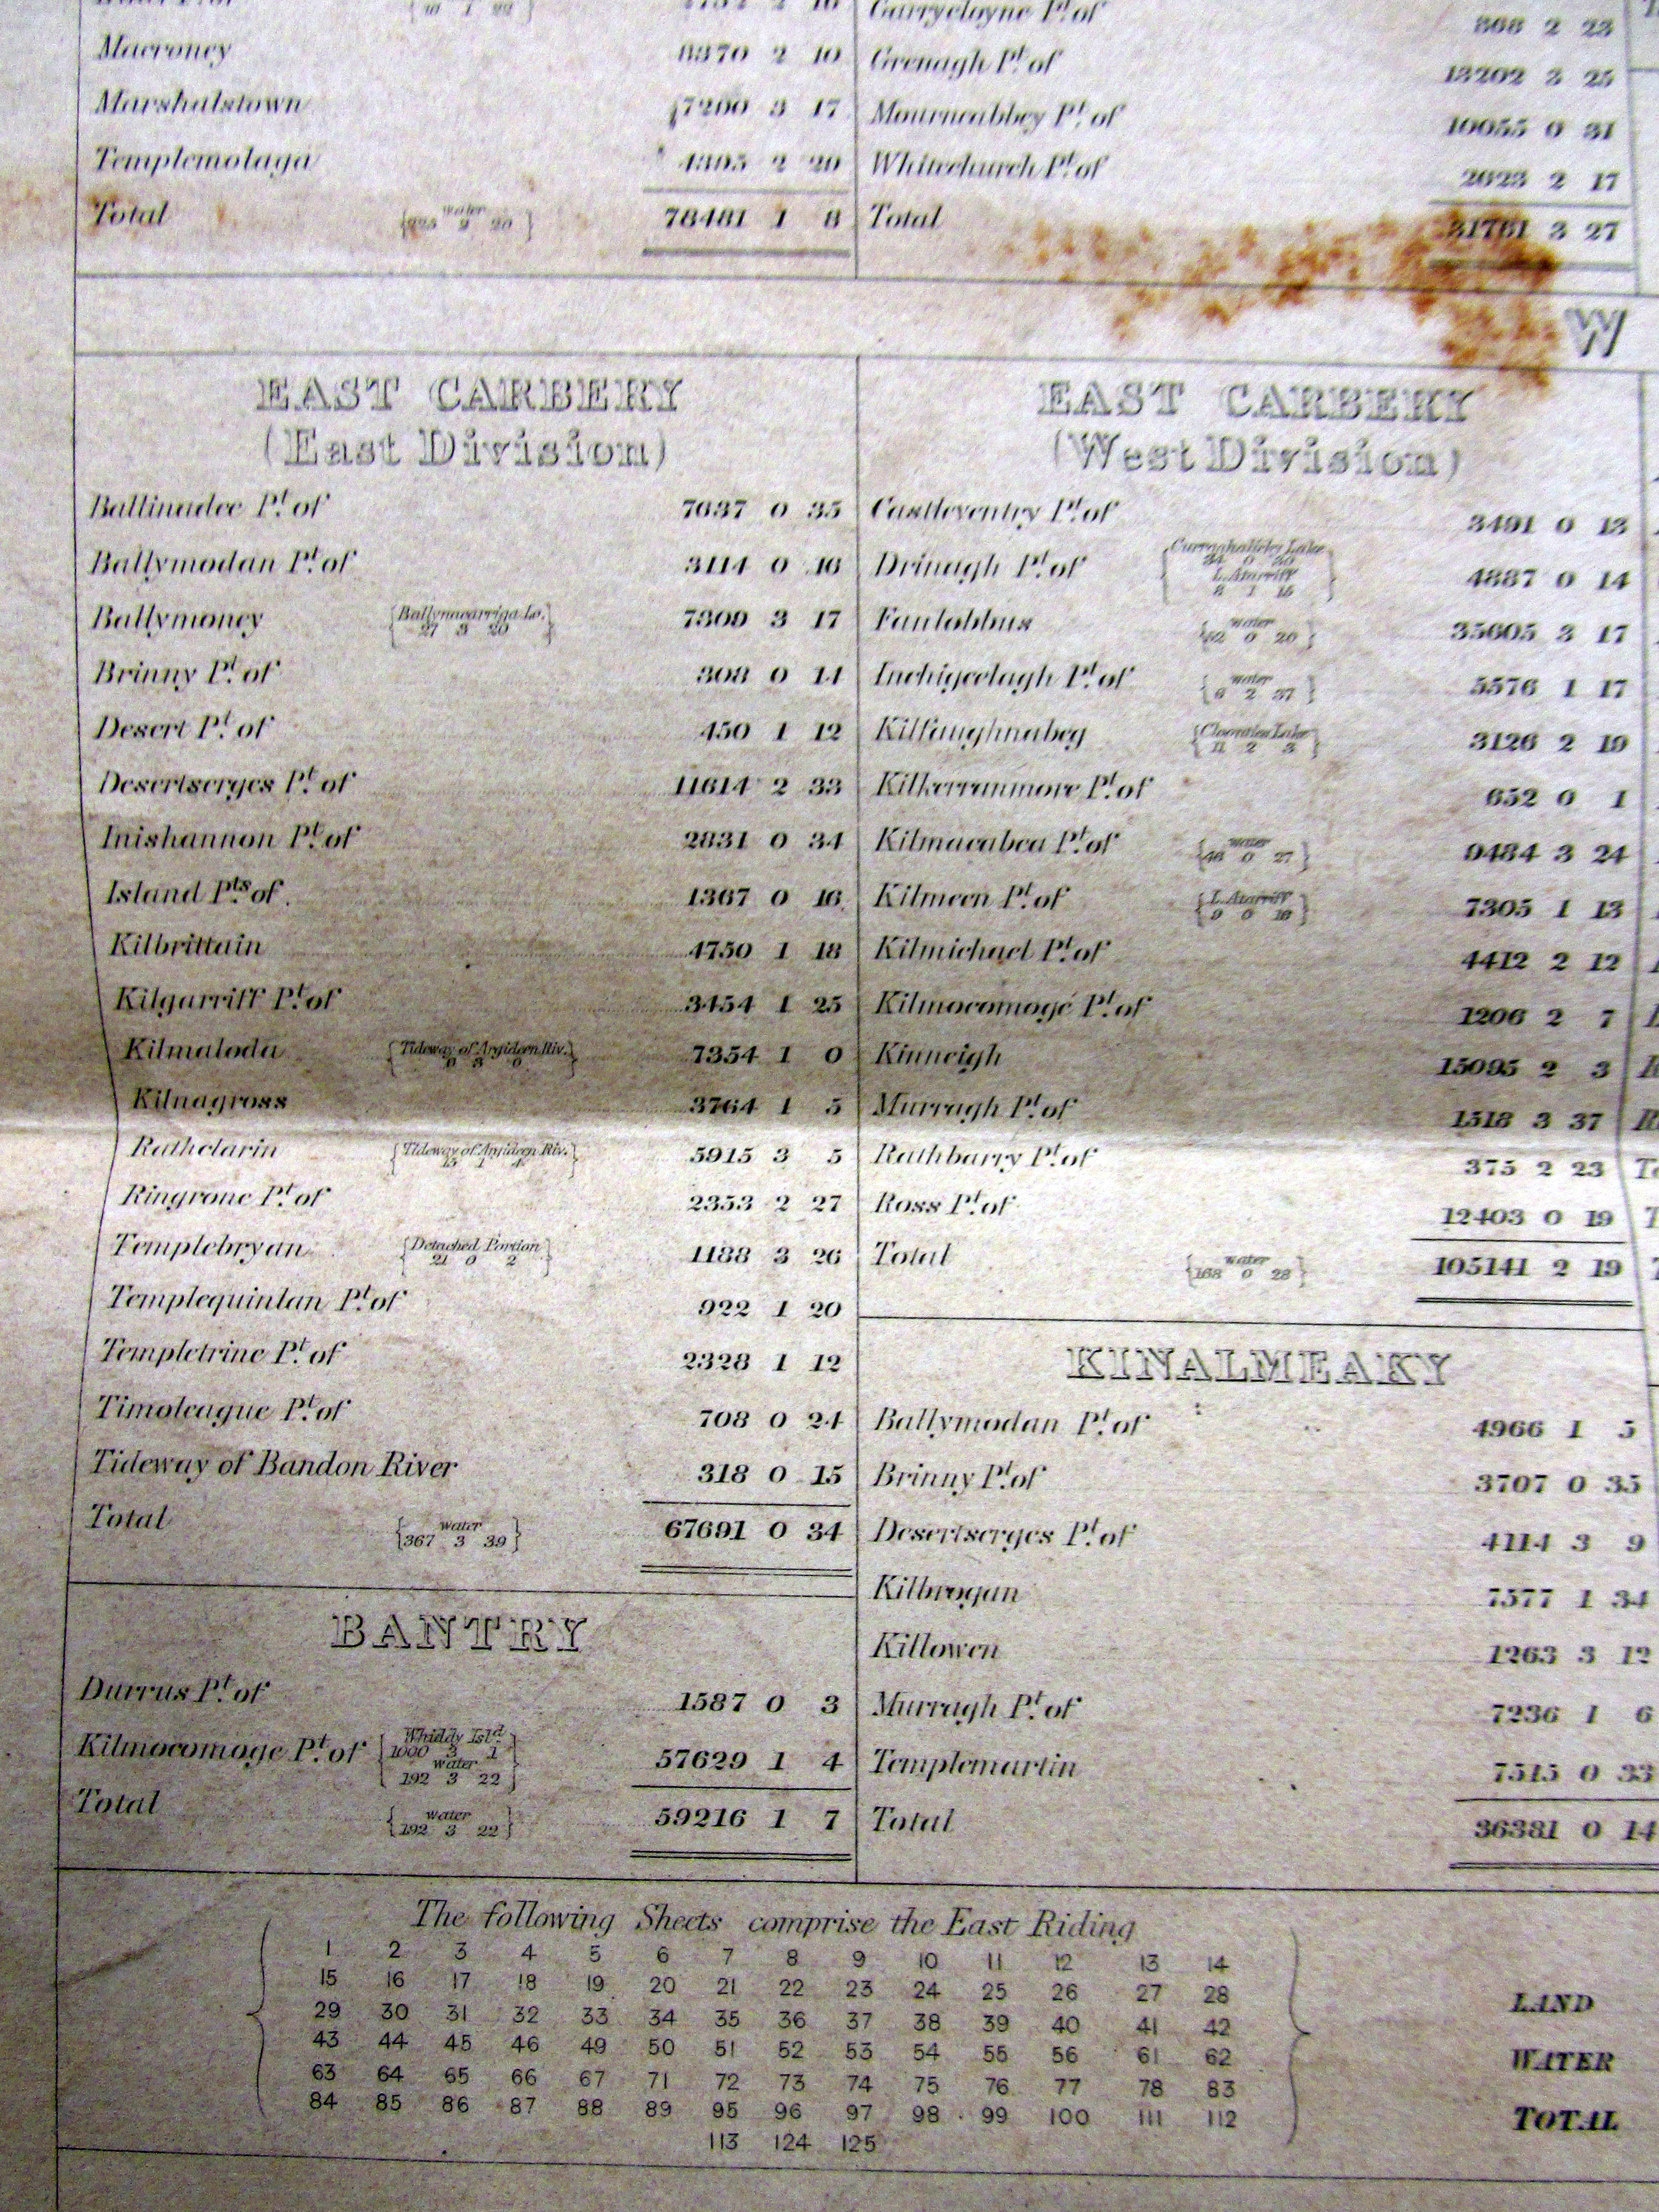 Macroney 8370 2 10
Marshalstown 17200 3 17
Templemolaga 2 20
Total 78481 1 8
Garrycloyne Pt. of 808 2 23
Grenagh Pt. of 13202 3 25
Mourneabbey Pt. of 10055 0 31
Whitechurch Pt. of 2623 2 17
Total 31761 3 27
W
EAST CARBERY
(East Division)
Ballinadee Pt. of 7637 0 35
Ballymodan Pt. of 3114 0 16
Ballymoney {Ballynacarriga Lo. 27 3 20} 7309 3 17
Brinny Pt. of 308 0 14
Desert Pt. of 450 1 12
Desertserges Pt. of 11614 2 33
Inishannon Pt. of 2831 0 34
Island Pts. of 1367 0 16
Kilbrittain 4750 1 18
Kilgarriff Pt. of 3454 1 25
Kilmaloda {Tideway of Argideen Riv.} 7354 1 0
Kilnagross 3764 1 5
Rathclarin {Tideway of Argideen Riv.} 5915 3 5
Ringrone Pt. of 2353 2 27
Templebryan {Detached Portion 21 0 2} 1188 3 26
Templequinlan Pt. of 922 1 20
Templetrine Pt. of 2328 1 12
Timoleague Pt. of 708 0 24
Tideway of Bandon River 318 0 15
Total {water 367 3 39} 67691 0 34
BANTRY
Durrus Pt. of 1587 0 3
Kilmocomoge Pt. of {Whiddy Isld. 1000 3 1 water 192 3 22} 57629 1 4
Total {water 192 3 22} 59216 1 7
EAST CARBERY
(West Division)
Castleventry Pt. of 3491 0 13
Drinagh Pt. of {Curraghalicky Lake L. Atarriff 8 1 16} 4887 0 14
Fanlobbus {water 62 0 20} 35605 3 17
Inchigeelagh Pt. of {water 6 2 37} 5576 1 17
Kilfaughnabeg {Lake 11 2 3} 3126 2 19
Kilkerranmore Pt. of 652 0 1
Kilmacabea Pt. of {water 46 0 27} 9484 3 24
Kilmeen Pt. of {L. Atarriff 9 0 16} 7305 1 13
Kilmichael Pt. of 4412 2 12
Kilmocomoge Pt. of 1206 2 7
Kinneigh 15095 2 3
Murragh Pt. of 1518 3 37
Rathbarry Pt. of 375 2 23
Ross Pt. of 12403 0 19
Total {water 168 0 28} 105141 2 19
KINALMEAKY
Ballymodan Pt. of 4966 1 5
Brinny Pt. of 3707 0 35
Desertserges Pt. of 4114 3 9
Kilbrogan 7577 1 34
Killowen 1263 3 12
Murragh Pt. of 7236 1 6
Templemartin 7515 0 33
Total 36381 0 14
The following Sheets comprise the East Riding
1 2 3 4 5 6 7 8 9 10 11 12 13 14
15 16 17 18 19 20 21 22 23 24 25 26 27 28
29 30 31 32 33 34 35 36 37 38 39 40 41 42
43 44 45 46 49 50 51 52 53 54 55 56 61 62
63 64 65 66 67 71 72 73 74 75 76 77 78 83
84 85 86 87 88 89 95 96 97 98 99 100 111 112
113 124 125
LAND
WATER
TOTAL